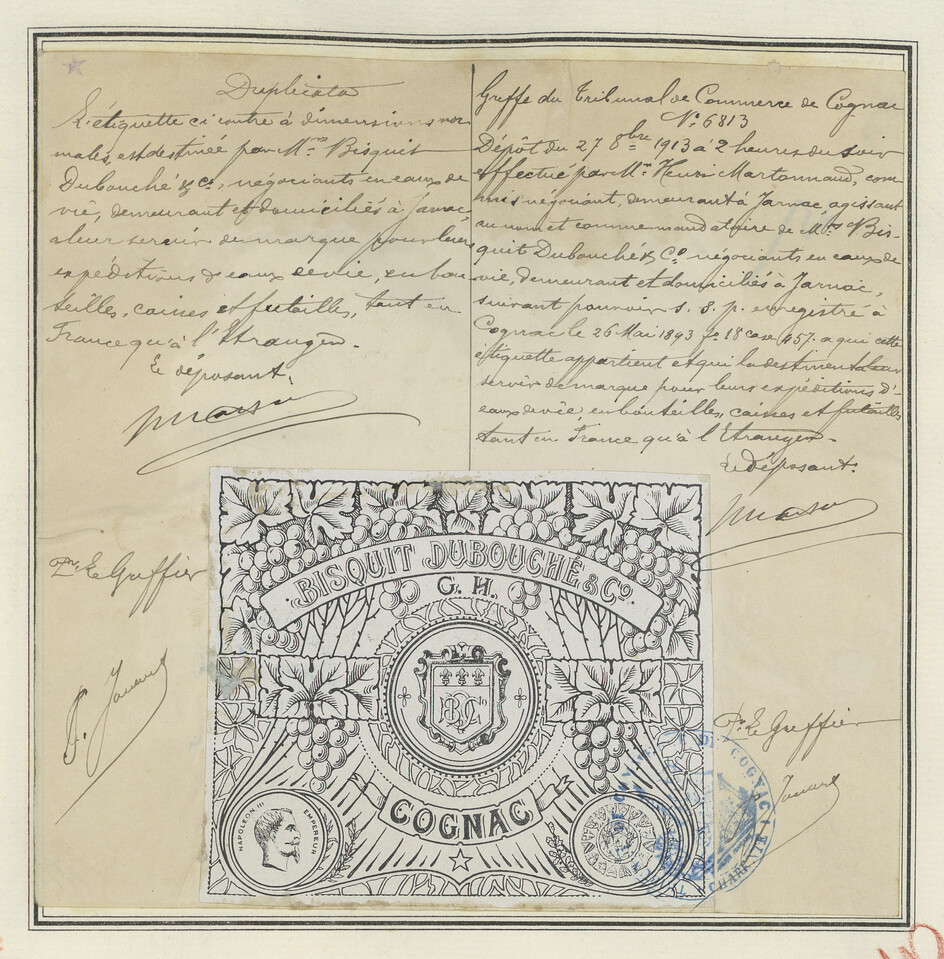 Duplicata
L'étiquette ci contre à dimensions nor
males, est destinée par Mrs Bisquit
Dubouché & Co, négociants en eaux de
vie, demeurant et domiciliés à Jarnac
à leur servir de marque pour leurs
expéditions d'eaux de vie, en bou
teilles, caisses et futailles, tant en
France qu'à l'Etranger.
Le déposant,
Pr Le Greffier
Greffe du Tribunal de Commerce de Cognac
No 6813
Dépôt du 27 8bre 1913 à 2 heures du soir
effectué par Mr Henri Martonnaud, com
mis négociant, demeurant à Jarnac agissant
au nom et comme mandataire de Mrs Bis-
quit Dubouché & Co négociants en eaux de
vie, demeurant et domiciliés à Jarnac,
suivant pouvoir s. s. p. enregistré à
Cognac le 26 Mai 1893 fo 18 case 457. à qui cette
étiquette appartient et qui la destinent à leur
servir de marque pour leurs expéditions d'
eaux de vie, en bouteilles, caisses et futailles
tant en France qu'à l'Etranger.
Le déposant.
Pr Le Greffier
BISQUIT DUBOUCHÉ & Co.
G. H.
BDCo
COGNAC
NAPOLEON III EMPEREUR
COGNAC